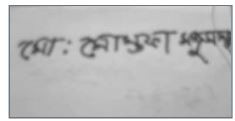 মো: মোস্তফা মজুমদার